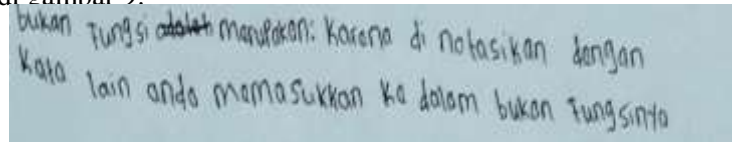 di gambar 5.
bukan Fungsi adalah merupakan: Karena di notasikan dengan
Kata lain anda memasukkan ke dalam bukan Fungsinya